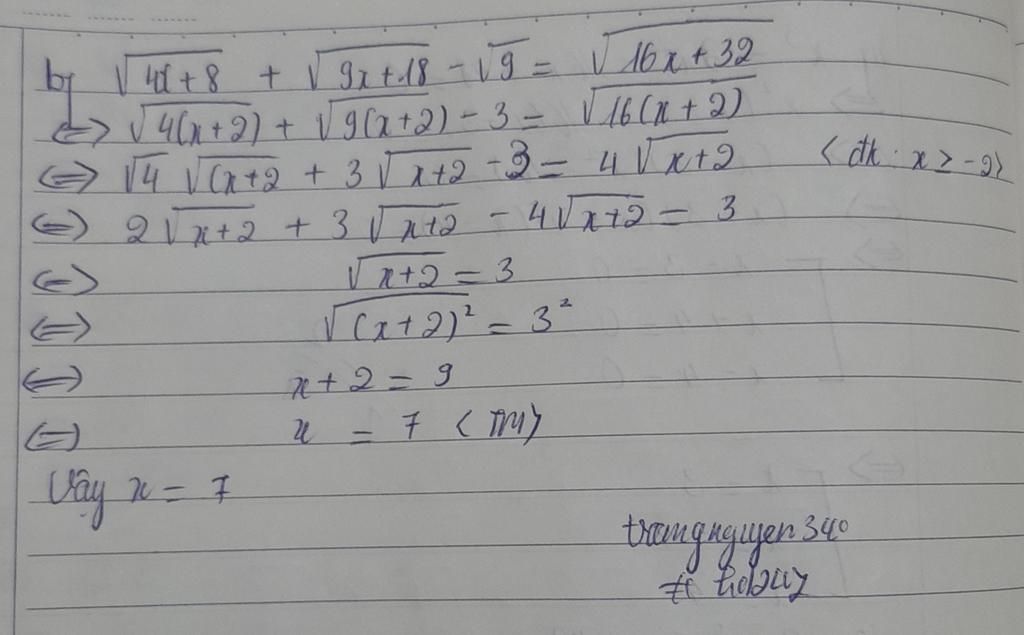 b) √4x+8 + √9x+18 - √9 = √16x+32
<=> √4(x+2) + √9(x+2) - 3 = √16(x+2)
<=> √4 √(x+2 + 3√x+2 - 3 = 4√x+2 <đk: x ≥ -2>
<=> 2√x+2 + 3√x+2 - 4√x+2 = 3
<=> √x+2 = 3
<=> √(x+2)² = 3²
<=> x+2 = 9
<=> x = 7 <TM>
Vậy x = 7
trangnguyen340